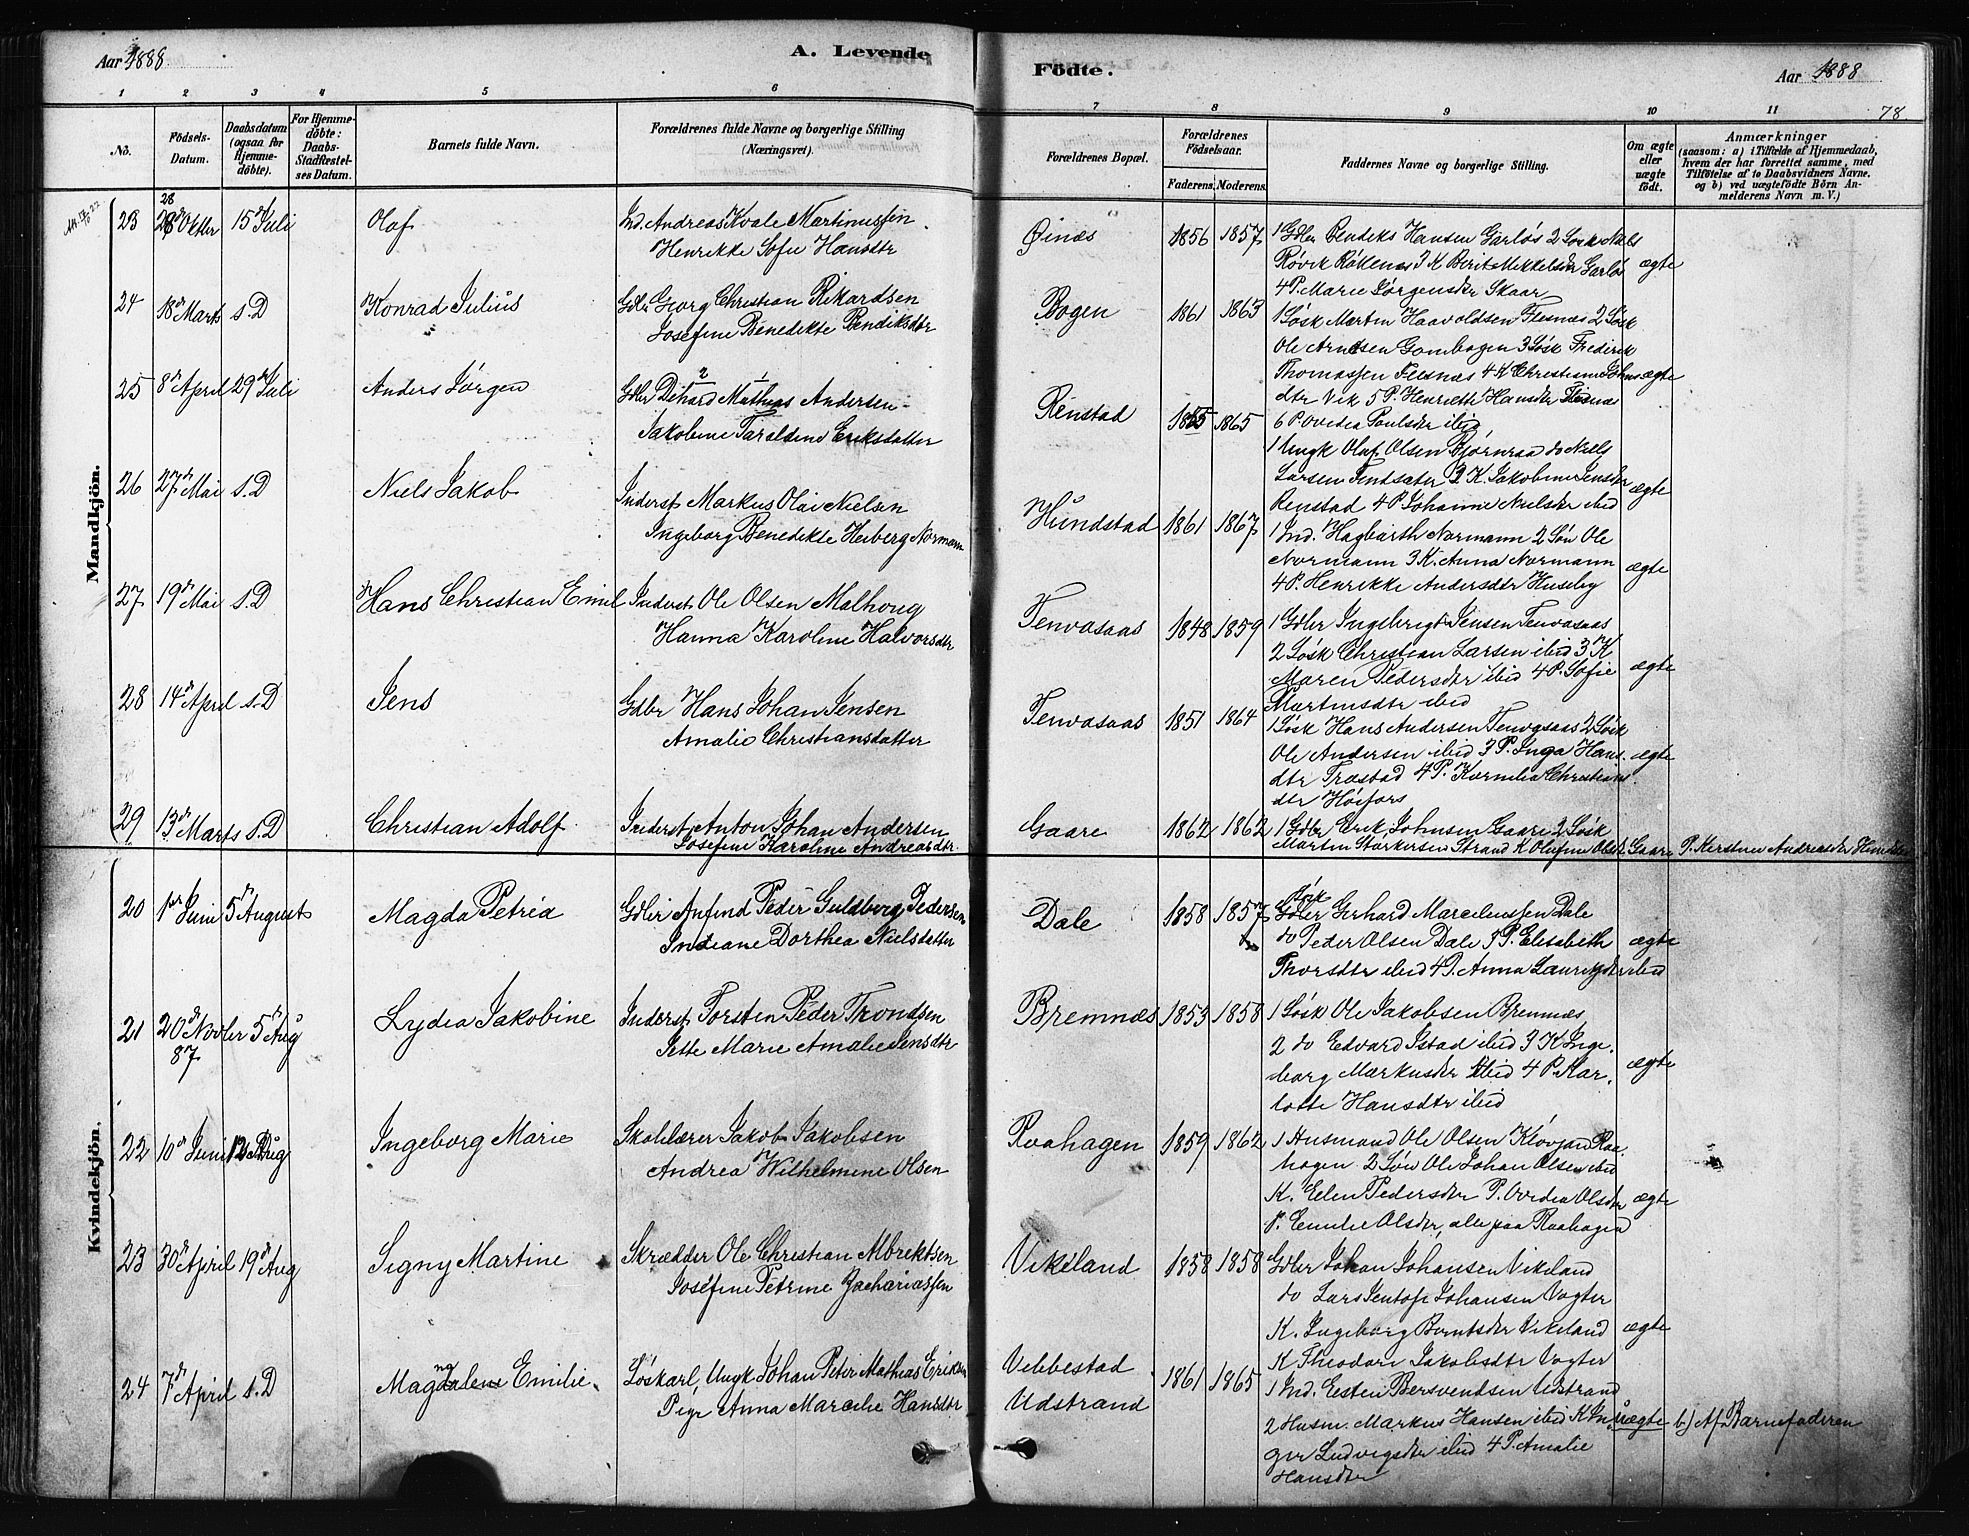 Aar 1888
A. Levende
Födte.
Aar 1888
78
1 2 3 4 5 6 7 8 9 10 11
No.
Födsels-Datum.
Daabsdatum (ogsaa for Hjemme-döbte).
For Hjemme-döbte: Daabs-Stadfæstel-ses Datum.
Barnets fulde Navn.
Forældrenes fulde Navne og borgerlige Stilling (Næringsvei).
Forældrenes Bopæl.
Forældrenes Födselsaar.
Faderens. Moderens.
Faddernes Navne og borgerlige Stilling.
Om ægte eller uægte födt.
Anmærkninger
(saasom: a) i Tilfælde af Hjemmedaab,
hvem der har forrettet samme, med
Tilföielse af to Daabsvidners Navne,
og b) ved uægtefödte Börn An-
melderens Navn m. V.)
Mandkjön.
23 28 Oktbr 15 Juli Olaf
Ind. Andreas Kvale Martinussen
Henrikke Sofie Hansdtr
Øinæs 1856 1857
1 Gdbr Bendiks Hansen Garløs 2 Løsk Niels
Røvik Røkenes 3 K Berit Mikkelsdtr Garløs
4 P. Marie Jørgensdtr Skaar
ægte
24 18 Marts s.D Konrad Julius
Gdbr Georg Christian Rikardsen
Josefine Benedikte Bendiksdtr
Bogen 1861 1863
1 Løsk Martin Haavoldsen Flesnæs 2 Løsk
Ole Arntsen Gombogen 3 Løsk Frederik
Thomassen Flesnæs 4 K Christiane Johns
dtr Vik 5 P. Henriette Hansdtr Flesnæs
6 P. Ovedia Paulsdtr ibid
ægte
25 8 April 29 Juli Anders Jørgen
Gdbr Dithard Mathias Andersen
2 1
Jakobine Taraldine Eriksdatter
Renstad 1865 1865
1 Ungk Olaf Olsen Bjørnraa do Niels
Larsen Tendsæter 3 K. Jakobine Jensdtr
Renstad 4 P Johanne Nielsdtr ibid
ægte
26 27 Mai s.D Niels Jakob
Inderst Markus Olai Nielsen
Ingeborg Benedikte Heiberg Normann
Hundstad 1861 1867
1 Ind. Hagbarth Normann 2 Søn Ole
Normann 3 K. Anna Normann
4 P. Henrikke Andersdtr Huseby
ægte
27 19 Mai s.D Hans Christian Emil
Inderst Ole Olsen Malhoug
Hanna Karoline Halvorsdtr
Tenvasaas 1848 1859
1 Gdbr Ingebrigt Jensen Tenvasaas
2 Løsk Christian Larsen ibid 3 K
Maren Pedersdtr ibid 4 P. Sofie
Martinsdtr ibid
ægte
28 14 April s.D Jens
Gdbr Hans Johan Jensen
Amalie Christiansdatter
Tenvasaas 1851 1864
1 Løsk Hans Andersen Tenvasaas 2 Løsk
Ole Andersen ibid 3 P. Inga Hans
dtr Træstad 4 P. Kornelia Christians
dtr Høifors
ægte
29 13 Marts s.D Christian Adolf
Inderst Anton Johan Andersen
Josefine Karoline Andreasdtr
Gaare 1862 1862
1 Gdbr Erik Johnsen Gaare 2 Løsk
Martin Størkersen Strand K Olufine Olsdtr Gaare P. Kirstine Andreasdtr
Kvindekjön.
20 1 Juni 5 August Magda Petrea
Gdbr Anfind Peder Guldberg Pedersen
Indiane Dorthea Nielsdatter
Dale 1858 1857
Løsk
Gdbr Gerhard Marceliussen Dale
do Peder Olsen Dale 3 P. Elisabeth
Thorsdtr ibid 4 P. Anna Lauritsdtr ibid
ægte
21 20 Novbr 87 5 Aug Lydia Jakobine
Inderst Torsten Peder Trondsen
Jette Marie Amalie Jensdtr
Bremnæs 1853 1858
1 Løsk Ole Jakobsen Bremnæs
2 do Edvard Istad ibid 3 K Inge-
borg Markusdtr ibid 4 P. Kar-
lotte Hansdtr ibid
ægte
22 10 Juni 12 Aug Ingeborg Marie
Skolelærer Jakob Jakobsen
Andrea Wilhelmine Olsen
Raahagen 1859 1862
1 Husmand Ole Olsen Kløvjan Raa-
hagen 2 Søn Ole Johan Olsen ibid
K. Elen Pedersdtr P. Ovedia Olsdtr
P. Emilie Olsdtr, alle paa Raahagen
ægte
23 30 April 19 Aug Signy Martine
Skrædder Ole Christian Albrektsen
Josefine Petrine Zachariassen
Vikeland 1858 1858
Gdbr Johan Johansen Vikeland
do Lars Jentoft Johansen Vogter
K. Ingeborg Berntsdtr Vikeland
K Theodore Jakobsdtr Vogter
ægte
24 7 April s.D Magdalene Emilie
ng
Løskarl, Ungk Johan Peter Mathias Eriksen
Pige Anna Marcelie Hansdtr
Vebbestad
Udstrand
1861 1865
1 Ind. Eesten Bersvendsen Udstrand
2 Husm. Markus Hansen ibid K In-
ger Ludvigsdtr ibid 4 P. Amalie
Hansdtr
uægte
b) Af Barnefaderen